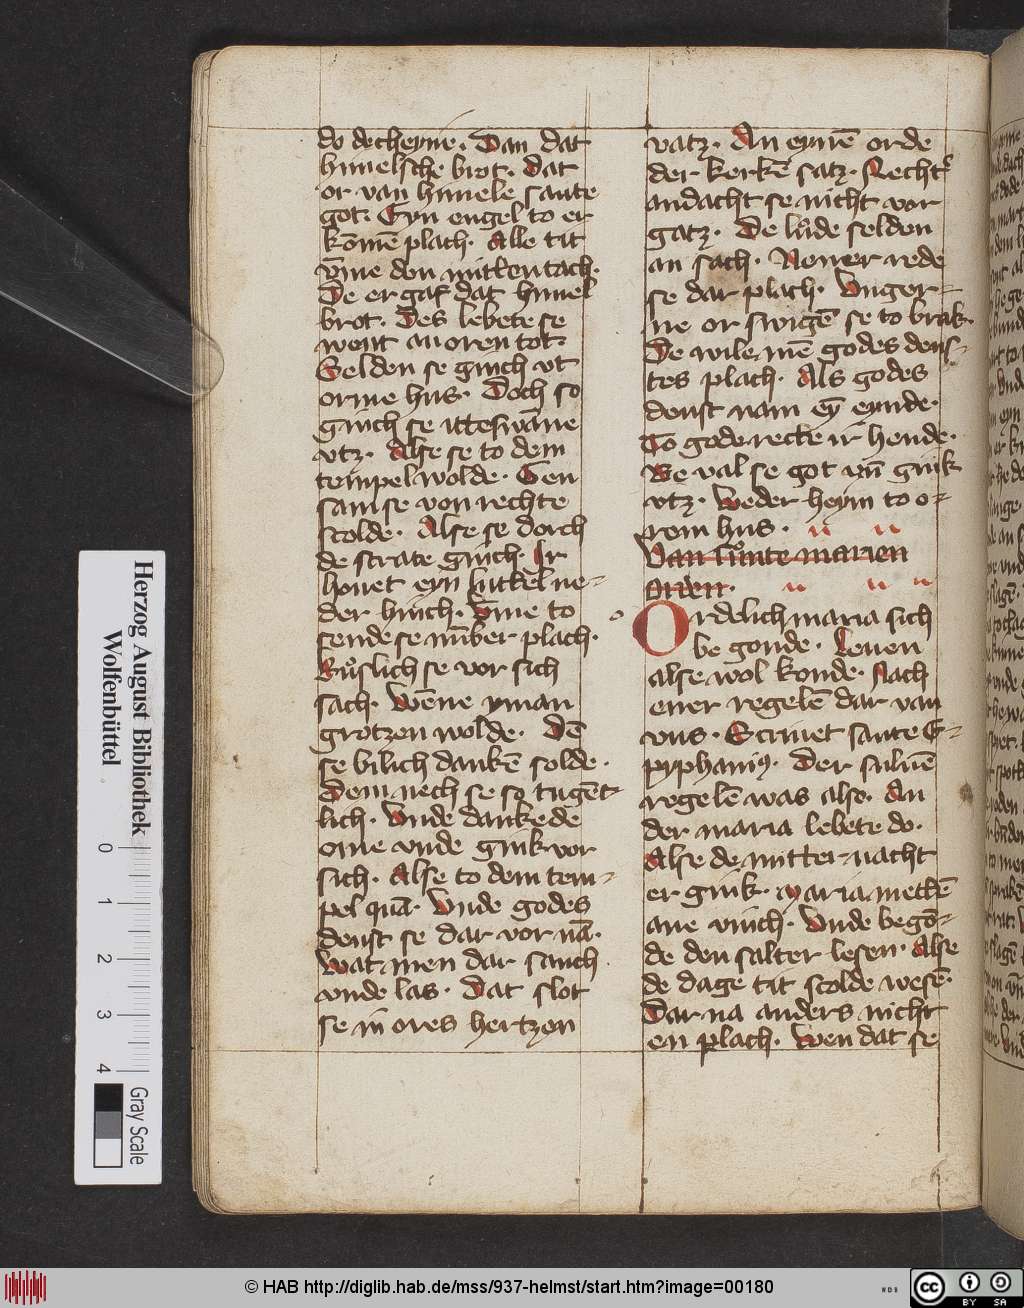 do decheyne. Dan dat
himelsche brot. Dat
or van himele sante
got. Eyn engel to er
komē plach. Alle tit
vm̄e den mittentach.
De er gaf dat himel
brot. Des lebete se
went an oren tot.
Selden se ginch vt
orme hus. Doch so
ginch se ittesw̄ane
vtz. Alse se to dem
tempel wolde. Gen
sam se von rechte
scolde. Alse se dorch
de strate ginch. Ir
houet eyn luttel ne-
der hinch. Vm̄e to
sende se num̄ber plach.
se vor sich
sach. Wēne yman
grotzen wolde. Dē
se bilich dankē solde.
Dem nech se so tugēt-
lich. Vnde dankede
ome vnde gink vor
sich. Alse to dem tem-
pel quā. Vnde godes
denst se dar vor nā.
Wat men dar sanch
vnde las. Dat slot
se in ores hertzen
vatz. An eynē orde
der kerkē satz. Recht
andacht se nicht vor
gatz. De lůde selden
an sach. Nener rede
se dar plach. Vnger-
ne or swigē se to brak.
De wile mē godes dens-
tes plach. Als godes
denst nam eȳ eynde.
To gode recte ir hende.
Be val se got vn̄ gink
vtz. Weder heym to o-
rem hus.
Van sůnte marien
orden.
Ordelich maria sich
be gonde. Leuen
alse wol konde. Nach
ener regelē dar van
vns. Scriuet sante E-
pyphaniꝯ. Der suluē
regelē was also. An
der maria lebete do.
Alse de mitter nacht
er gink. Maria mettē
ane vinch. Vnde begō-
de den salter lesen. Alse
de dage tit scolde wesē.
Dar na anders nicht
en plach. Wen dat se
Herzog August Bibliothek
Wolfenbüttel
0 1 2 3 4
Gray Scale
© HAB http://diglib.hab.de/mss/937-helmst/start.htm?image=00180
WDB
cc BY SA